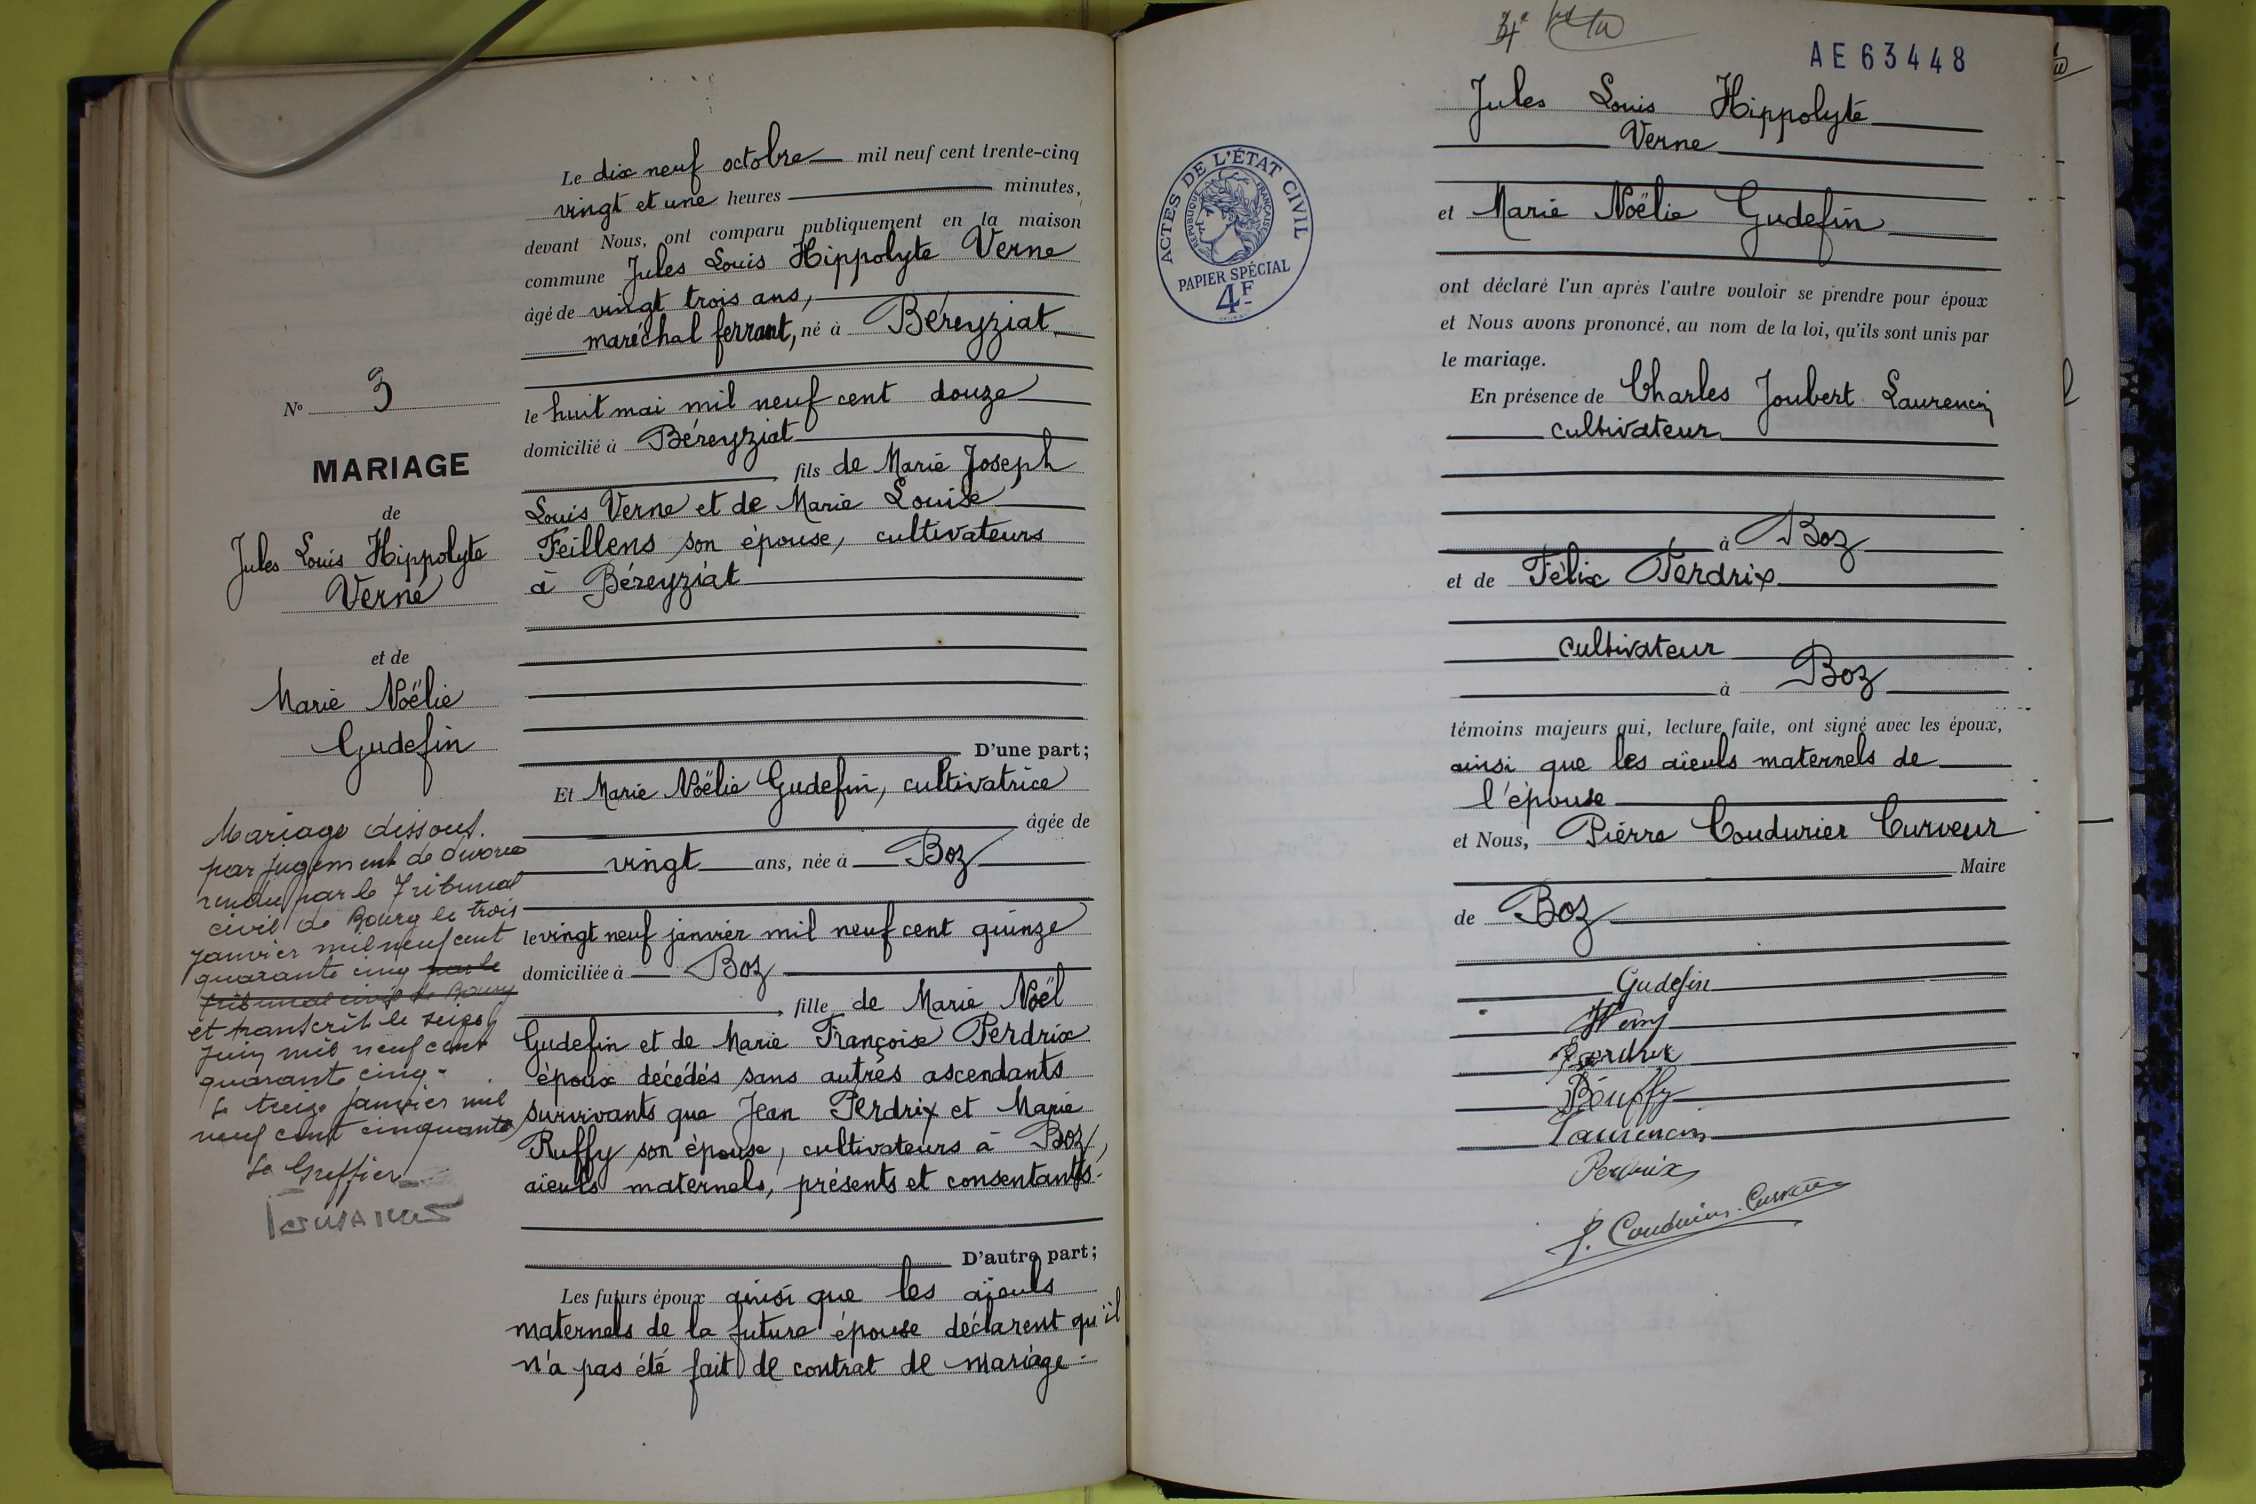 Le dix neuf octobre mil neuf cent trente-cinq
vingt et une heures minutes,
devant Nous, ont comparu publiquement en la maison
commune Jules Louis Hippolyte Verne
âgé de vingt trois ans,
maréchal ferrant, né à Béreyziat
le huit mai mil neuf cent douze
domicilié à Béreyziat
fils de Marie Joseph
Louis Verne et de Marie Louise
Feillens son épouse, cultivateurs
à Béreyziat
D'une part;
Et Marie Noëlie Gudefin, cultivatrice
âgée de
vingt ans, née à Boz
le vingt neuf janvier mil neuf cent quinze
domiciliée à Boz
fille de Marie Noël
Gudefin et de Marie Françoise Perdrix
époux décédés sans autres ascendants
survivants que Jean Perdrix et Marie
Ruffy son épouse, cultivateurs à Boz,
aïeuls maternels, présents et consentants.
D'autre part;
Les futurs époux ainsi que les aïeuls
maternels de la future épouse déclarent qu'il
n'a pas été fait de contrat de mariage.
N° 3
MARIAGE
de
Jules Louis Hippolyte
Verne
et de
Marie Noëlie
Gudefin
Mariage dissous
par jugement de divorce
rendu par le Tribunal
civil de Bourg le trois
janvier mil neuf cent
quarante cinq par le
tribunal civil de Bourg
et transcrit le seize
juin mil neuf cent
quarante cinq.
Le treize janvier mil
neuf cent cinquante
Le Greffier
AE63448
ACTES DE L'ÉTAT CIVIL
RÉPUBLIQUE FRANÇAISE
PAPIER SPÉCIAL
4F
Jules Louis Hippolyte
Verne
et Marie Noëlie Gudefin
ont déclaré l'un après l'autre vouloir se prendre pour époux
et Nous avons prononcé, au nom de la loi, qu'ils sont unis par
le mariage.
En présence de Charles Joubert Laurencin
cultivateur
à Boz
et de Félix Perdrix
cultivateur
à Boz
témoins majeurs qui, lecture faite, ont signé avec les époux,
ainsi que les aïeuls maternels de
l'épouse
et Nous, Pierre Coudurier Curveur
Maire
de Boz
Gudefin
Perdrix
Laurencin
Perdrix
P. Coudurier-Curveur